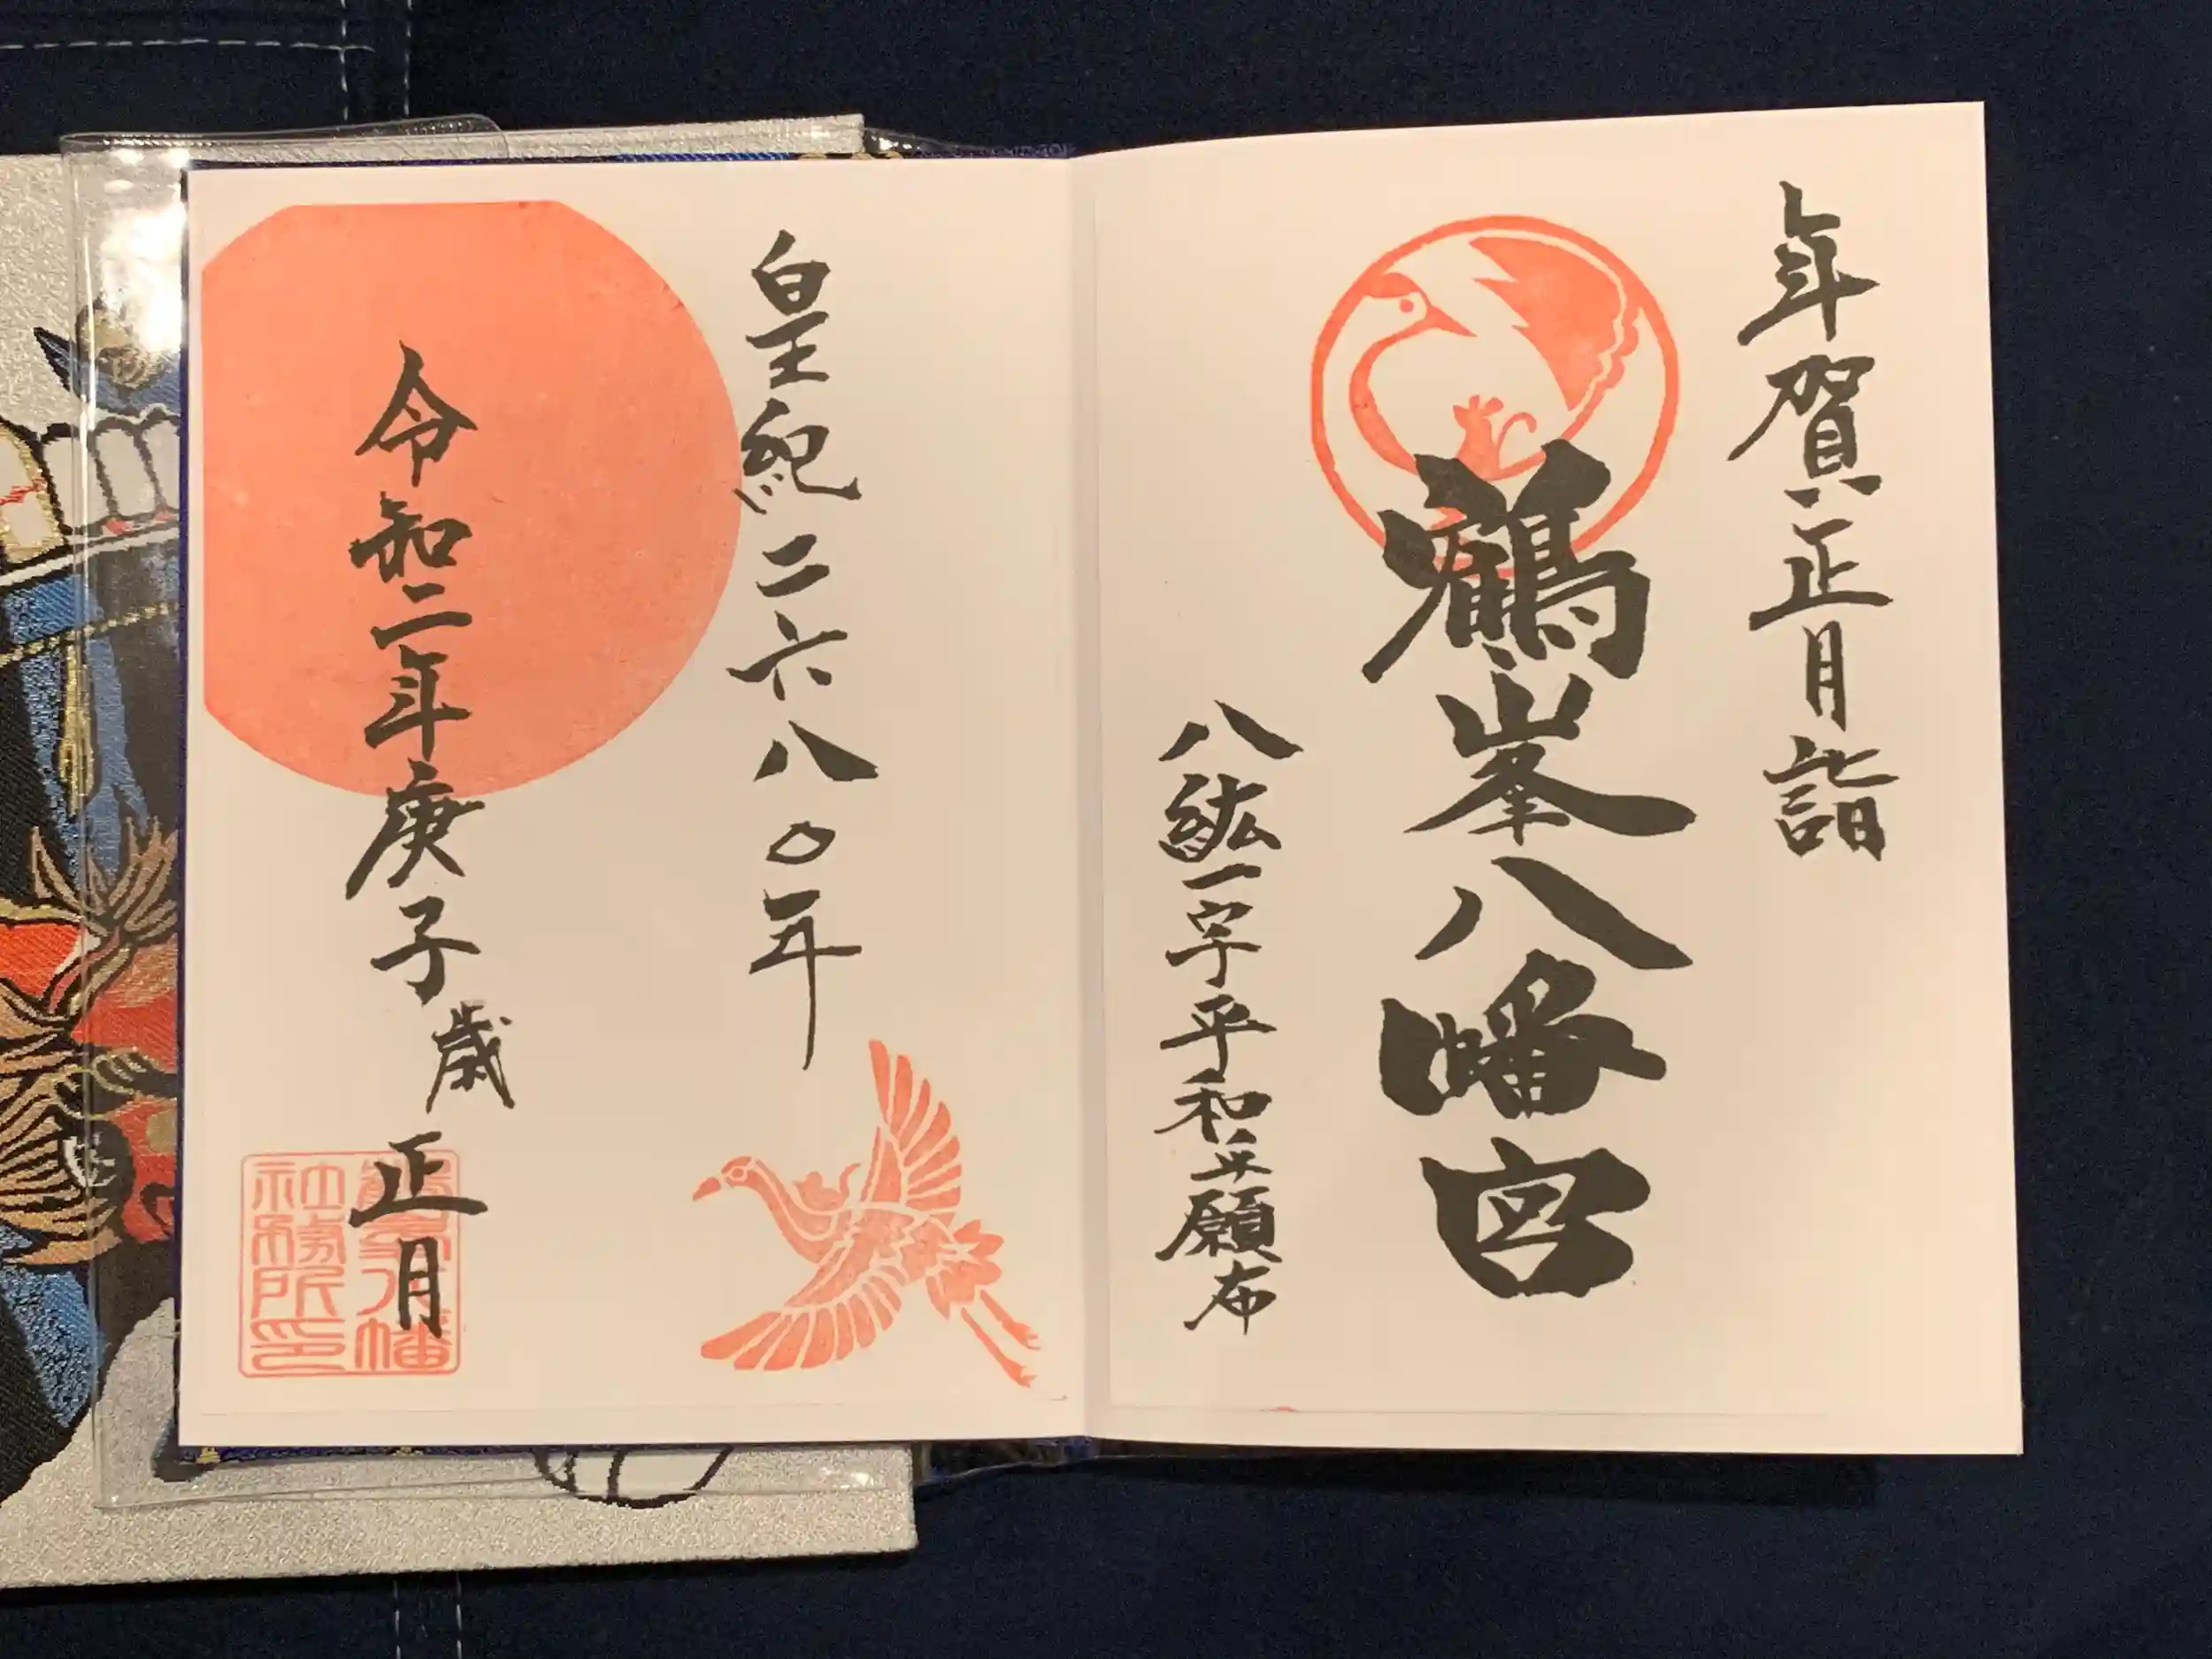 年賀正月詣
鶴峯八幡宮
八紘一宇平和並願布
皇紀二六八〇年
令和二年庚子歳 正月
鶴峯八幡
社務所印